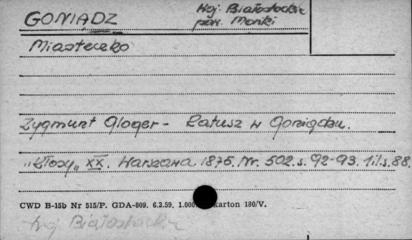 GONIĄDZ
Woj. Białostockie
pow. Mońki
Miasteczko
Zygmunt Gloger - Ratusz w Goniądzu.
"Kłosy" XX. Warszawa 1875. Nr. 502. s. 92-93. 1 il. s. 88.
CWD B-15b Nr 515/P. GDA-809. 6.3.59. 1.000 karton 180/V.
Woj Białostockie